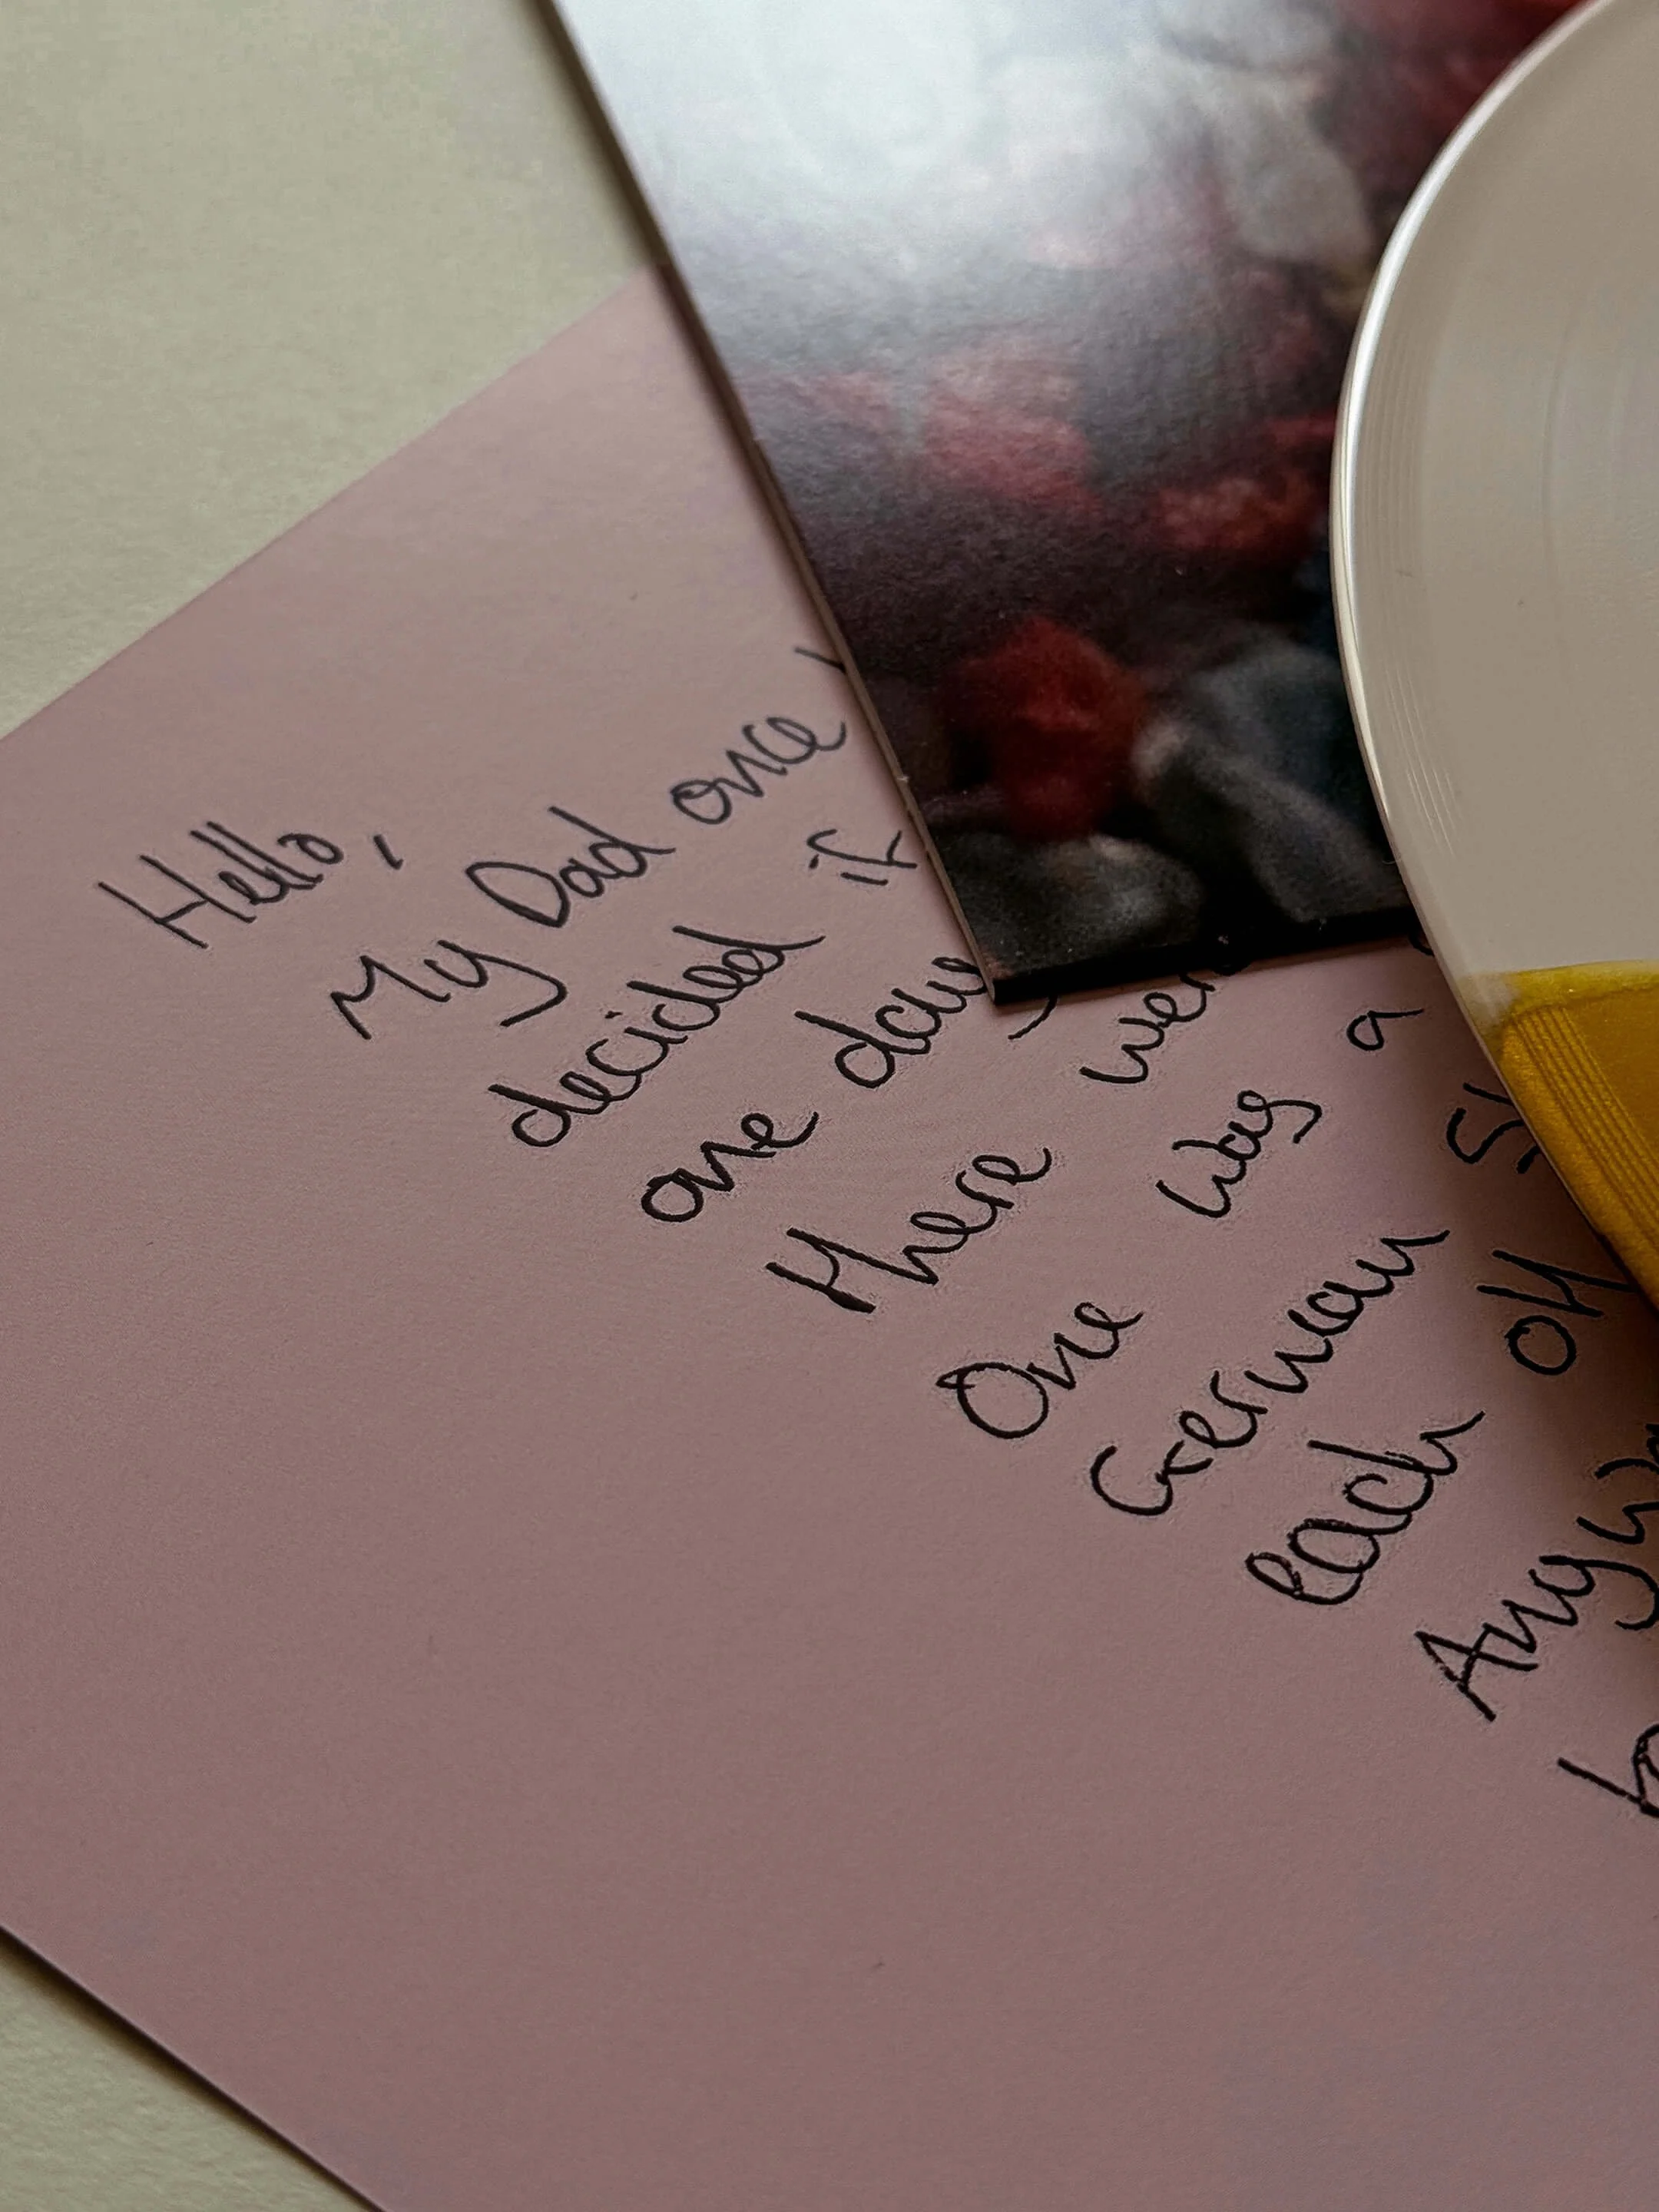 Hello,
My Dad once
decided if
one day
There were
One was a
German
each off